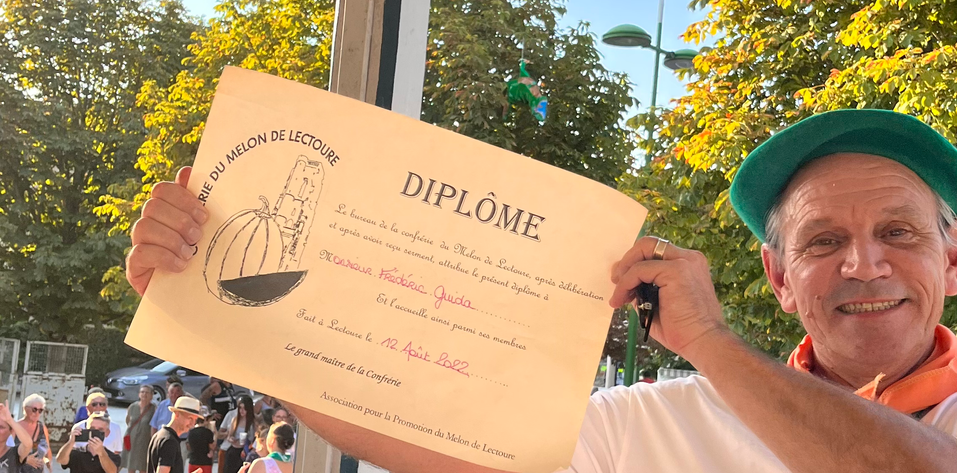 DU MELON DE LECTOURE
DIPLÔME
Le bureau de la confrérie du Melon de Lectoure, après délibération
et après avoir reçu serment, attribue le présent diplôme à
Monsieur Frédéric Guida
Et l'accueille ainsi parmi ses membres
Fait à Lectoure le 12 Août 2022
Le grand maître de la Confrérie
Association pour la Promotion du Melon de Lectoure